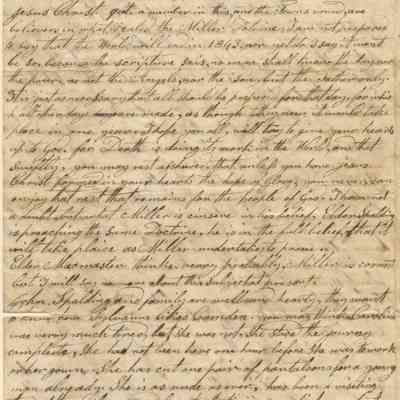 Jesus Christ. quite a number in this, and the Towns round, are
believers in what is called the Miller Doctrine, I am not prepared
to say that the World will end in 1843, nor yet do I say it wont
be so, because the scriptures sais, no man shall know the day and
the hour, no not the Angels, nor the Son, but the Father only.
It is not necessary that all should be prepared for that day, for which
all other days are made, as though they were it would take
place in one year. I hope you all, will try to give your hearts
up to God, for Death is doing its work in the World, and that
Suddenly, you may rest assured, that unless you have Jesus
Christ formed in your hearts the hope of Glory, you never, can
enjoy that rest that remains for the people of God. I have not
a doubt but what Miller is sincere in his belief, Eldon Spalding
is preaching the same Doctrine, he is in the full belief, that it
will take plaise as Miller undertakes to prove it,
Elder Macmaster thinks, very probably, Miller is correct
but I will say no more about this subject at present.
John Spalding and family are well and hearty, they went
Sylvanus
was very much tired, but she was not, She stood the journey
complete, She had not been here one hour before she was to work
on her gown. She has cut one pair of pantaloons for a young
man already. She is as made as ever, has been a visiting